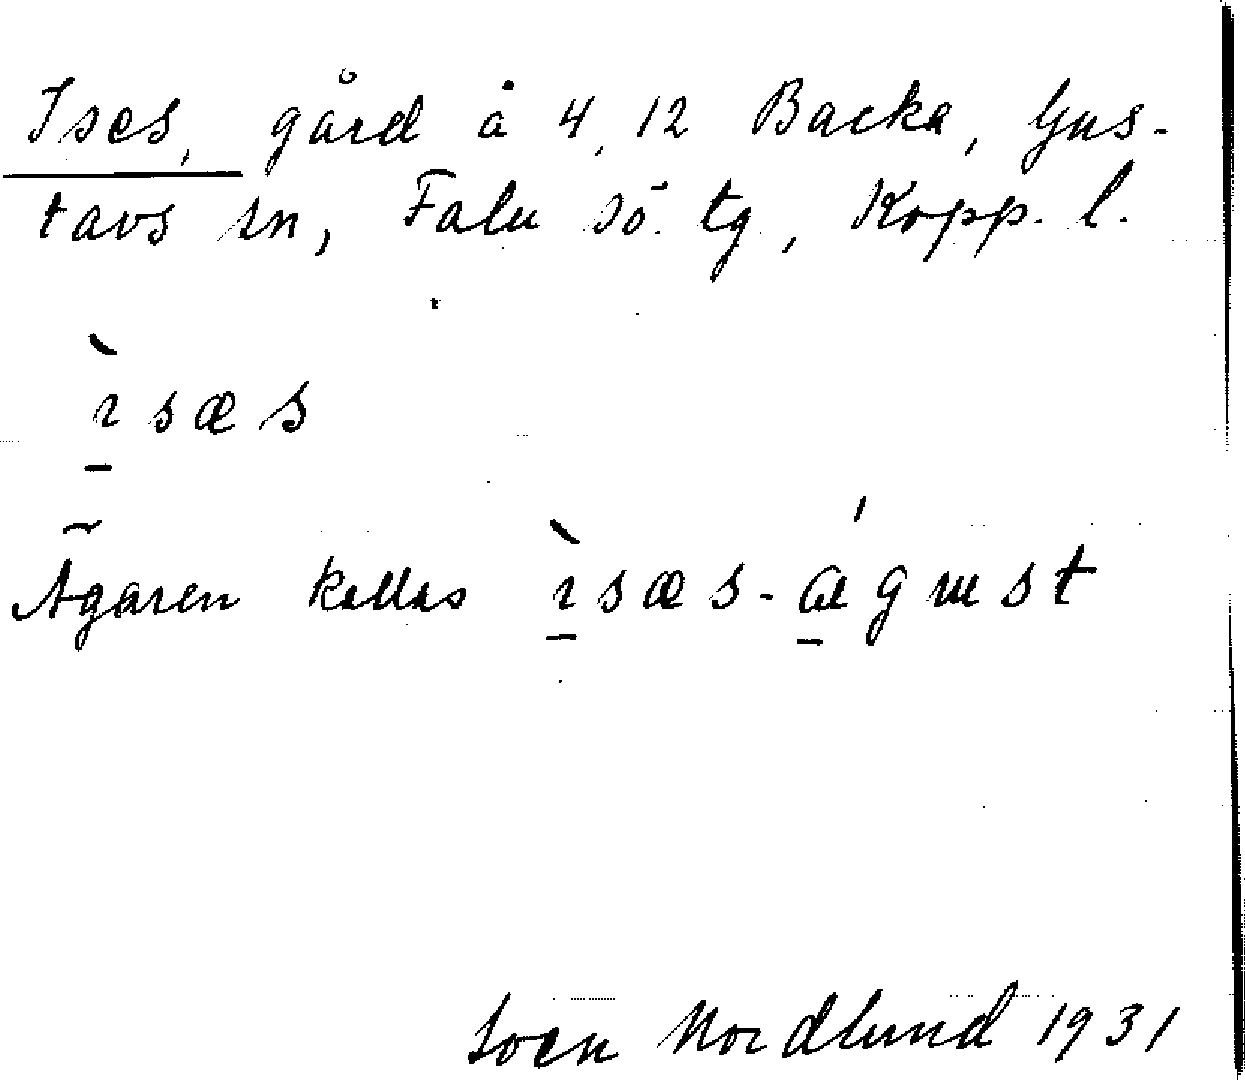 Ises, gård å 4, 12 Backa, Gus-
tavs sn, Falu sö. tg, Kopp. l.
ı̱̀sæs
Ägaren kallas ı̱̀sæs-áu̱gɯst
Sven Nordlund 1931